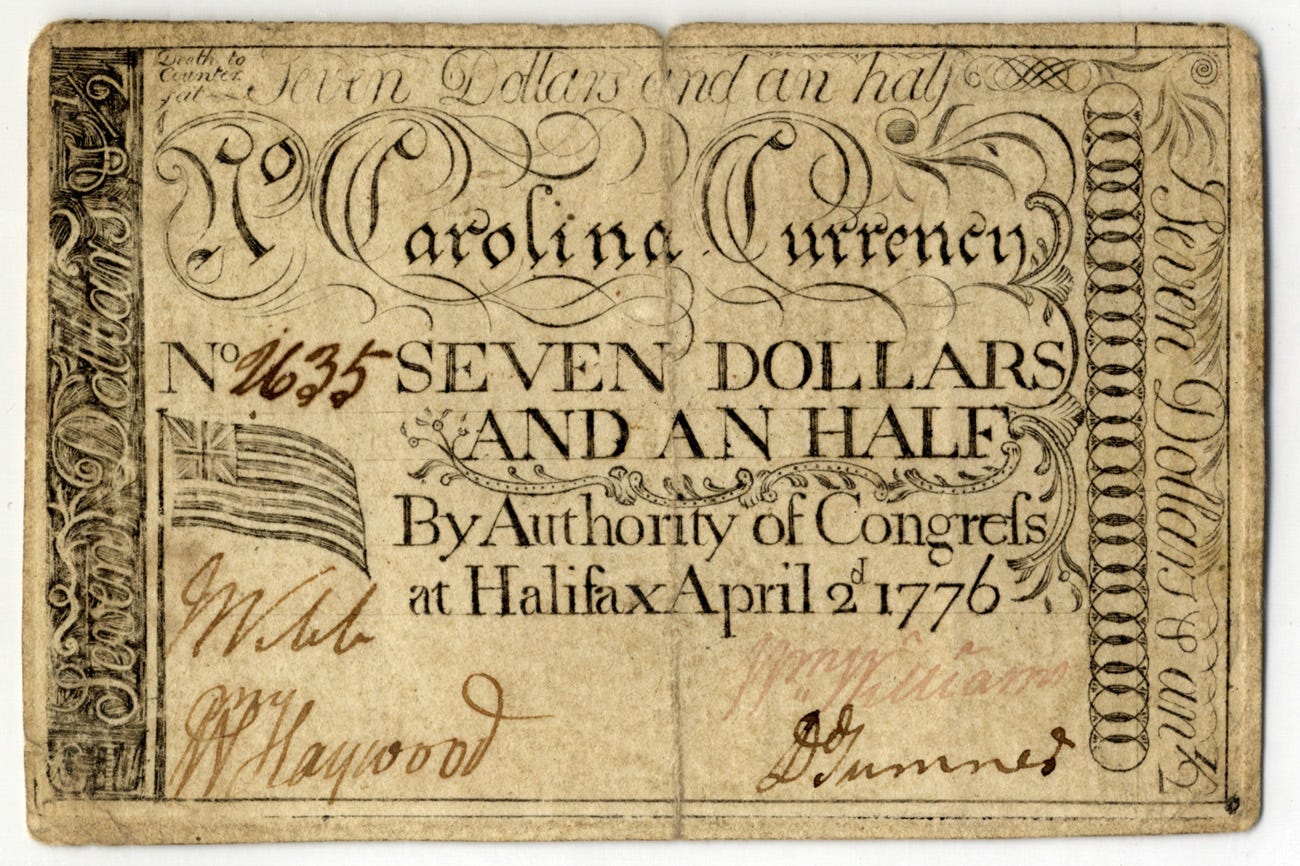 Death to
Counter
fat
Seven Dollars and an half
Nº Carolina Currency
Nº 2635 SEVEN DOLLARS
AND AN HALF
By Authority of Congreſs
at Halifax April 2d 1776
J Webb
Wm Haywood
Wm Williams
Dd Sumner
Seven Dollars & 1/2
Seven Dollars & an 1/2